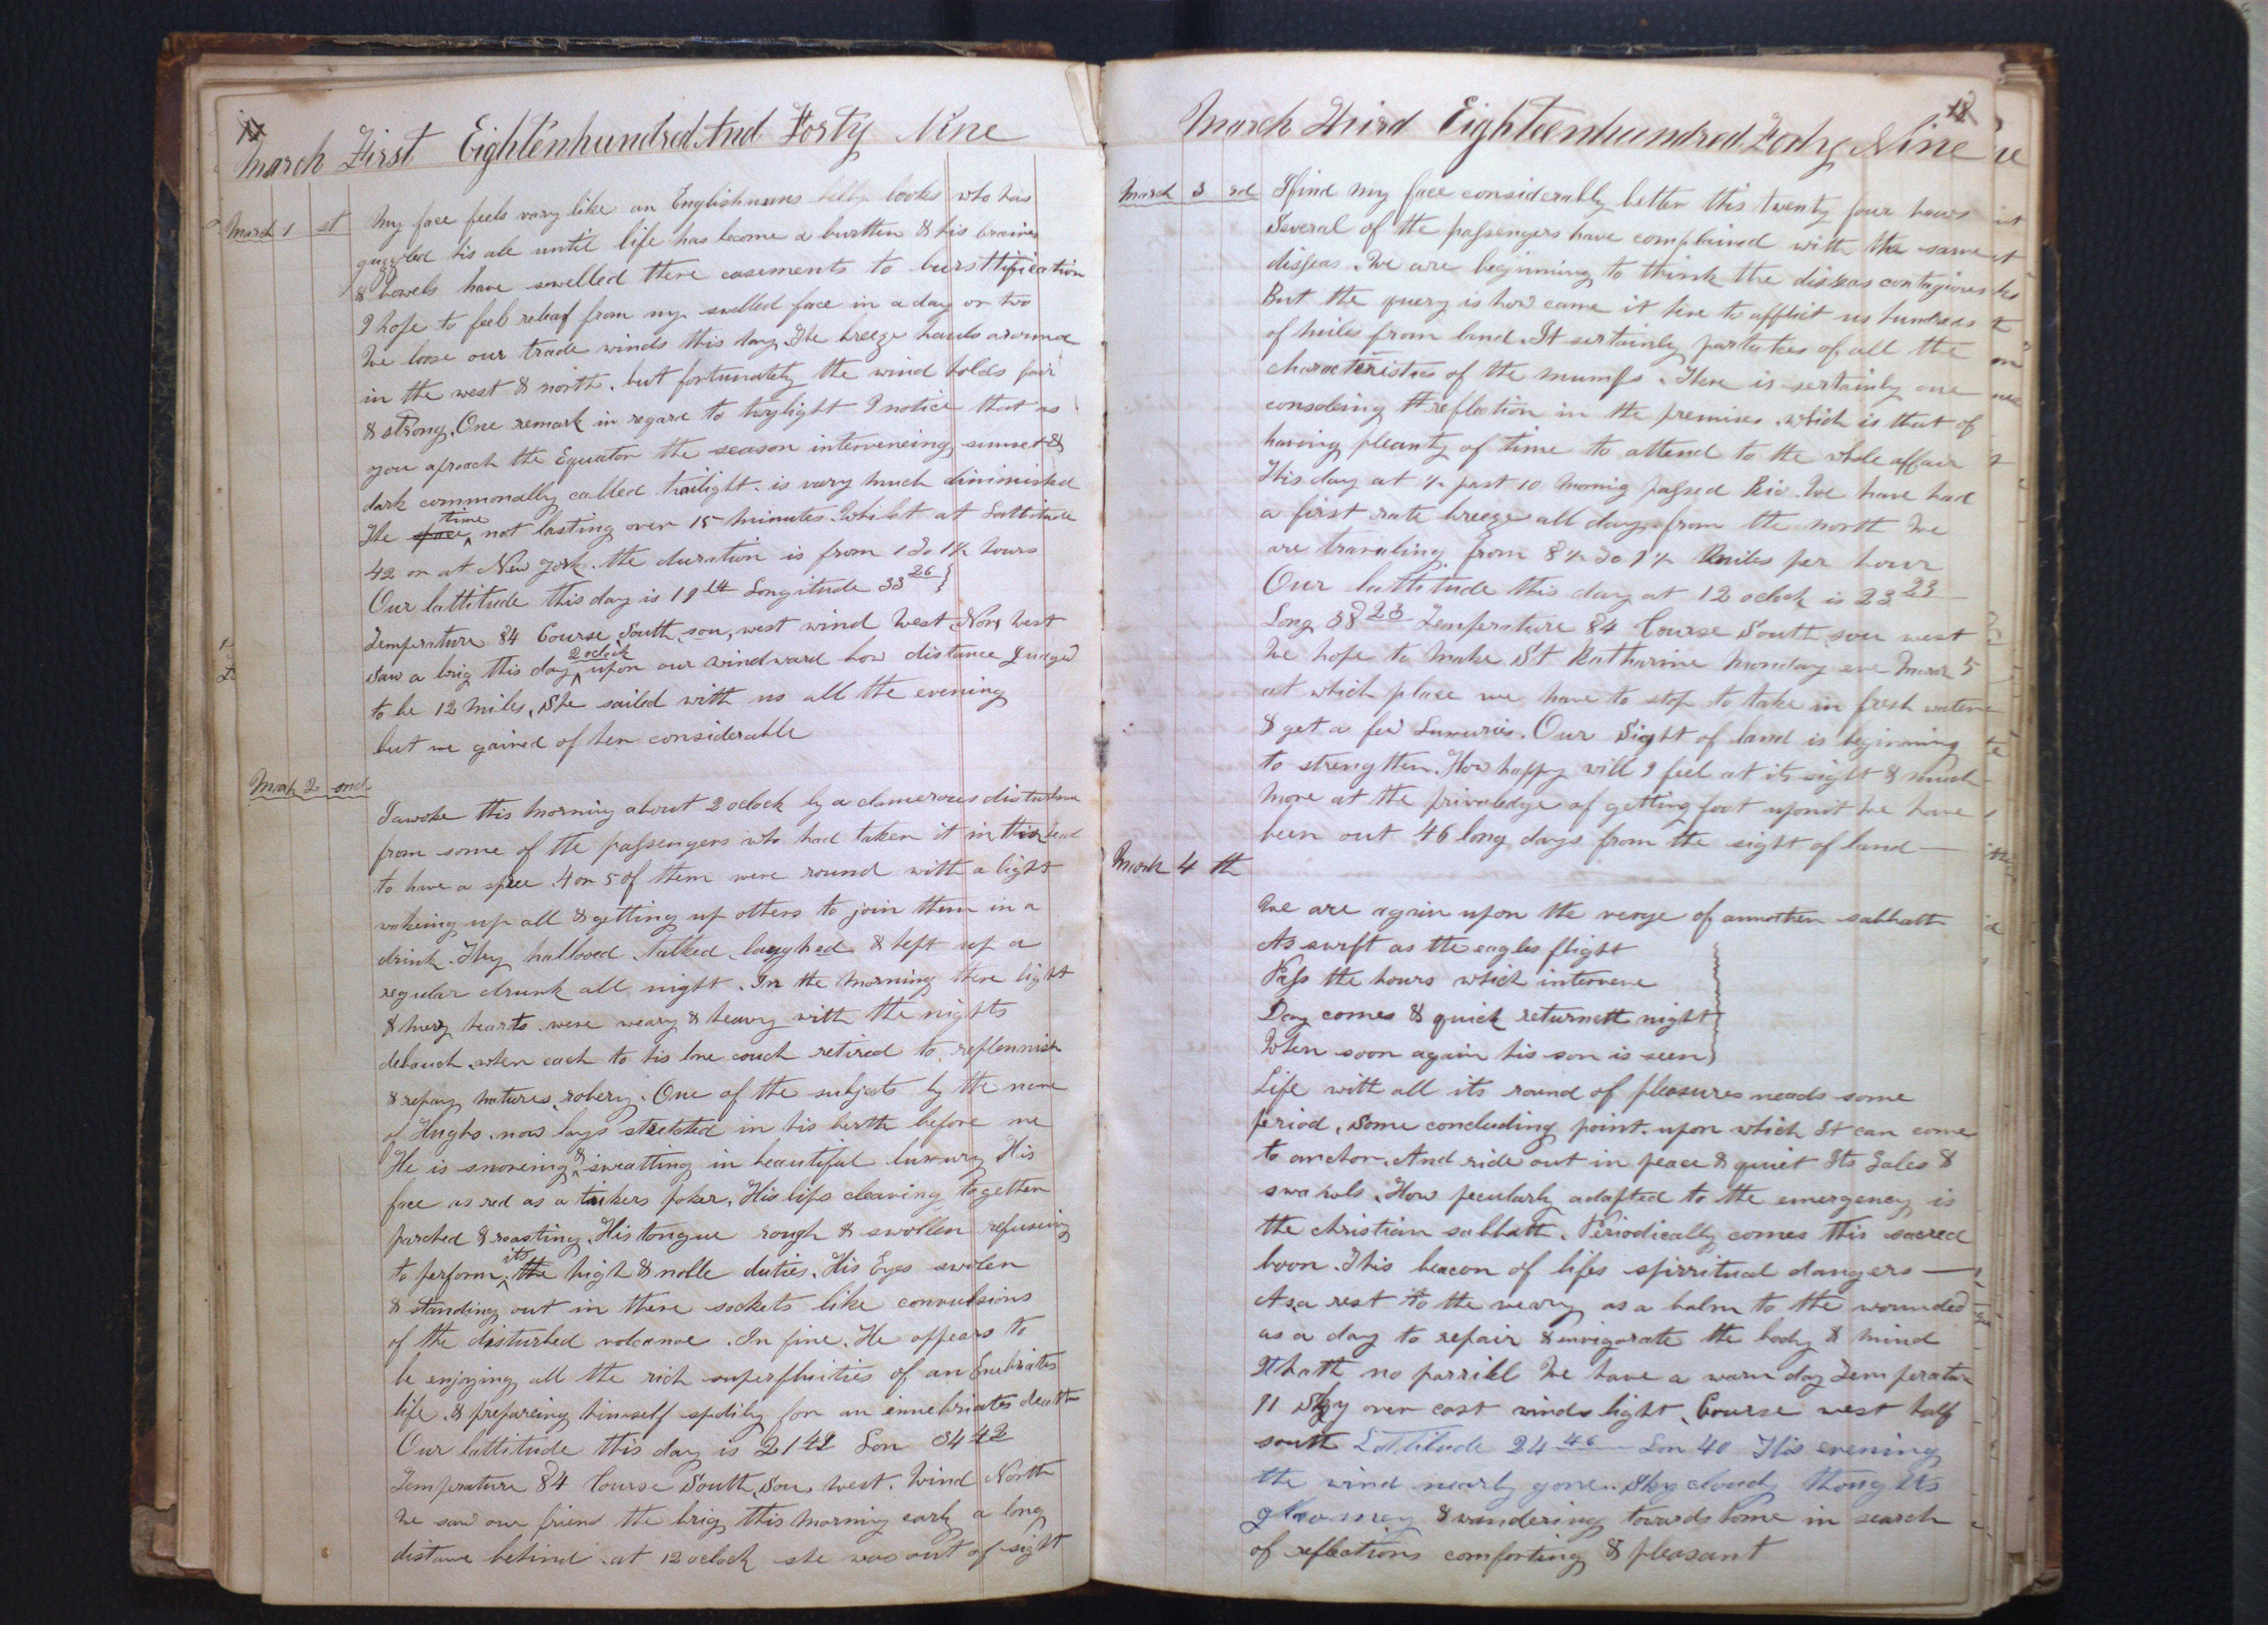 March First Eightenhundred And Forty Nine
March 1 st
My face feels vary like an Englishmans belly looks who has
guzzled his ale until life has become a burtten & his braines
& bowels have swelled there casements to bursttification
I hope to feel releaf from my swelled face in a day or two
We loose our trade winds this day. The breeze hauls around
in the west & north. but fortunately the wind holds fair
& strong. One remark in regard to twylight I notice that as
you aproach the Equator the season interveneing sunset &
dark commonally called twilight. is vary much diminished
The space time not lasting over 15 minutes. Whilst at Lattitude
42 or at New York. the duration is from 1 To 1½ hours
Our lattitude this day is 19 14 Longitude 33 26
Temperature 84 Course South, sou, west wind West, Nor, West
Saw a brig this day 2 oclock upon our windward bow distance Judged
to be 12 miles, She sailed with us all the evening
but we gained of her considerable
March 2 ond
I awoke this morning about 2 oclock by a clamerous disturbance
from some of the passengers who had taken it in thier head
to have a spree. 4 or 5 of them were round with a light
wakeing up all & getting up others to join them in a
drink. They hallooed talked laughed & kept up a
regular drunk all night. In the morning there light
& merry hearts were weary & heavy with the nights
debauch. when each to his lone couch retired to replennish
& repay natures robery. One of the subjects by the name
of Hughs. now lays stretched in his berth before me
He is snoreing & sweatting in beautiful luxury His
face as red as a tinkers poker, His lips cleaving together
parched & roasting. His tongue rough & swollen refuseing
to perform its the high & noble duties. His Eyes swolen
& standing out in there sockets like convulsions
of the disturbed volcanoe. In fine. He appears to
be enjoying all the rich superfluities of an Enebriates
life. & prepareing himself spedily for an innebriates death
Our lattitude this day is 21 42 Lon 34 42
Temperature 84 Course South, Sou, West. Wind North
We saw our friend the brig this morning early a long
distance behind at 12 oclock she was out of sight
18
March Third Eighteenhundred Forty Nine
March 3 rd
I find my face considerably better this twenty four hours
Several of the passengers have complained with the same
disseas. We are beginning to think the diseas contagious
But the query is how came it here to afflict us hundreds
of miles from land. It sertainly partakes of all the
characteristics of the mumps. There is sertainly one
consoleing reflection in the premises. which is that of
having pleanty of time to attend to the whole affair
This day at ½ past 10 Mornig passed Rio. We have had
a first rate breeze all day from the north We
are traveling from 8½ To 9½ Miles per hour
Our lattitude this day at 12 oclock is 23 23
Long 38 23 Temperature 84 Course South, sou west
We hope to make St Katharine Monday eve March 5
at which place we have to stop to take in fresh water
& get a few Luxuries. Our Sight of land is beginning
to strengthen. How happy will I feel at its sight & much
more at the priviledge of getting foot upon it We have
been out 46 long days from the sight of land
March 4 th
We are again upon the verge of annother sabbath
As swift as the eagles flight
Pass the hours which intervene
Day comes & quick returneth night
When soon again his son is seen
Life with all its round of pleasures needs some
period, Some concluding point. upon which It can come
to anchor. And ride out in peace & quiet Its Gales &
How peculiarly adapted to the emergency is
the christian sabbath. Periodically comes this sacred
boon. This beacon of lifes spirritual dangers
As a rest to the weary as a balm to the wounded
as a day to repair & invigorate the body & mind
It hath no parrilel We have a warm day Temperatur
91 Sky over cast winds light, Course west half
south Lattitude 24 46 Lon 40 This evening
the wind nearly gone. Sky cloudy thoughts
gloomey & wandering towards home in search
of reflections comforting & pleasant